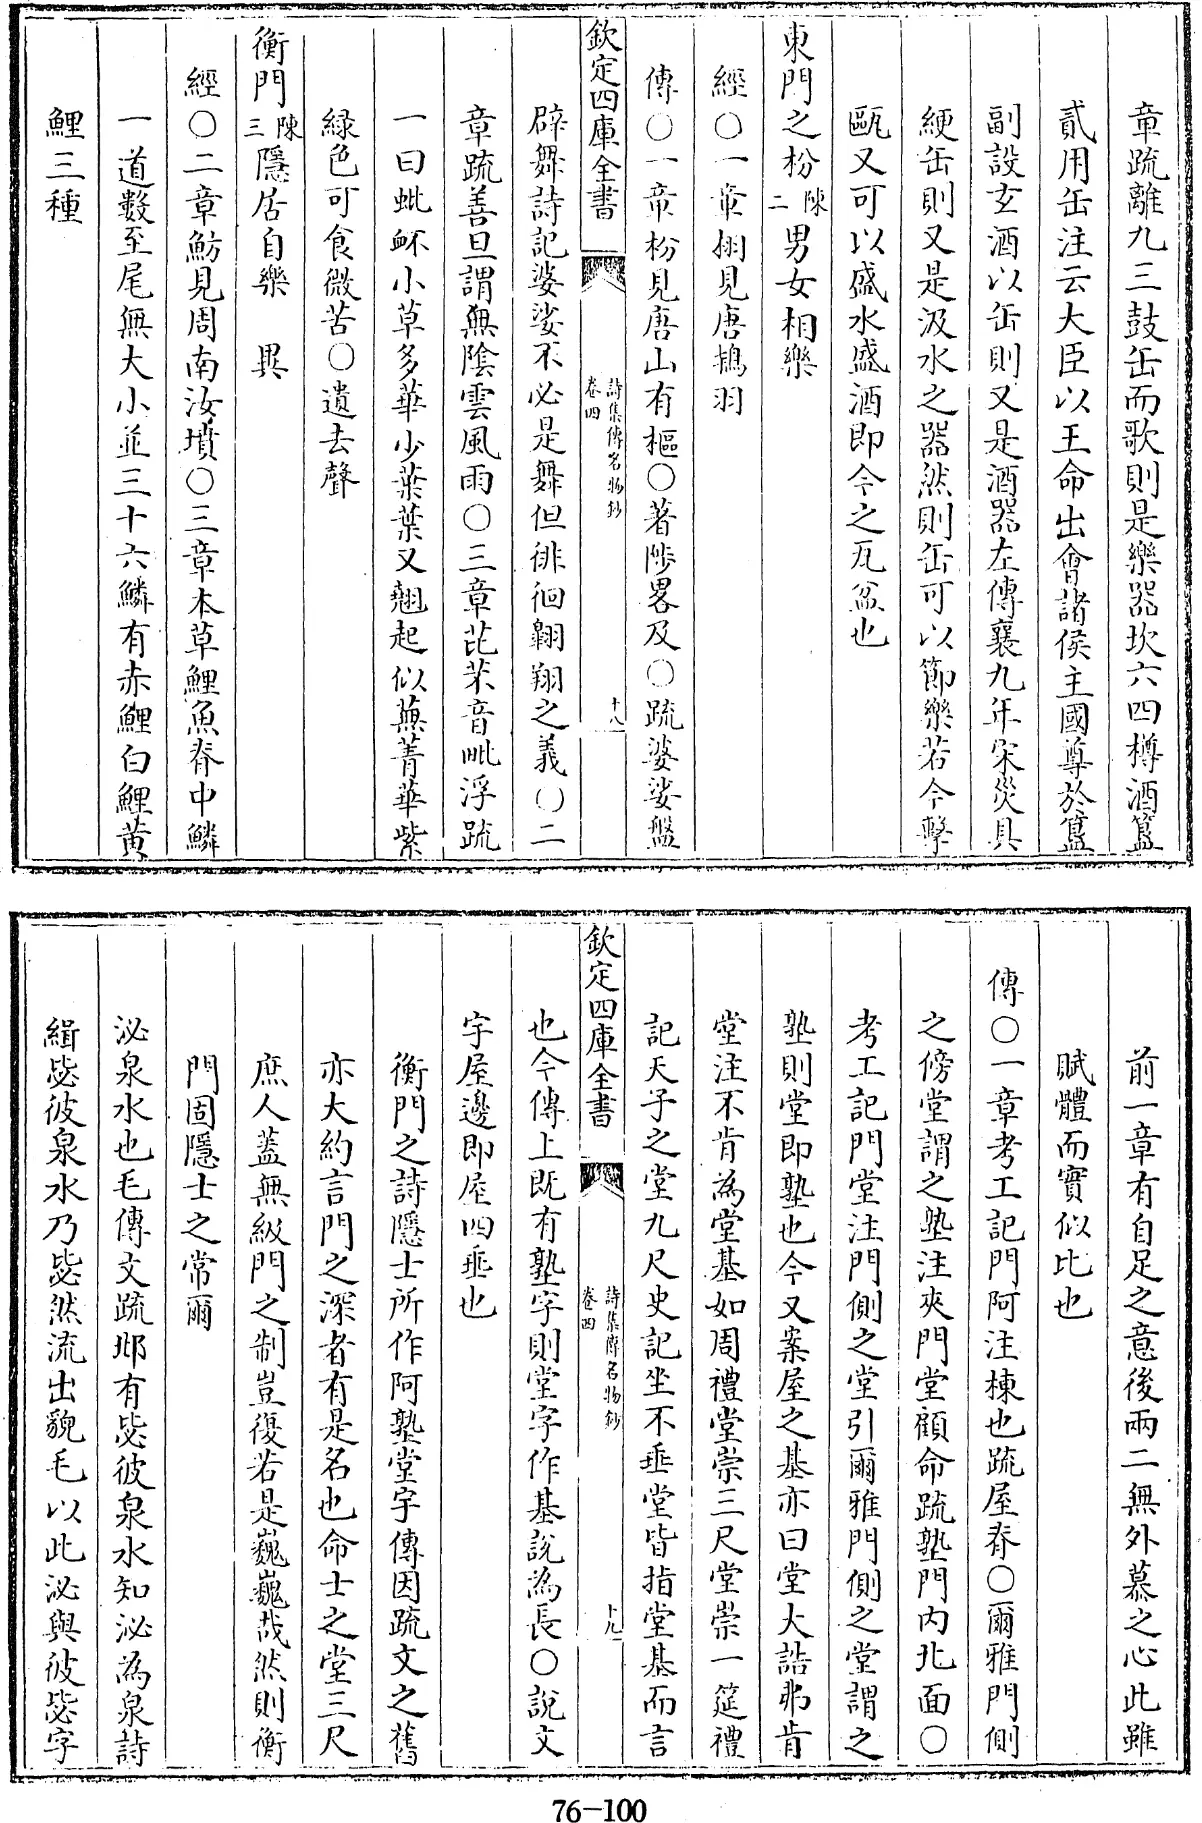 章疏離九三鼓缶而歌則是樂器坎六四樽酒簋
貳用缶注云大臣以王命出會諸侯主國尊於簋
副設玄酒以缶則又是酒器左傳襄九年宋災具
綆缶則又是汲水之器然則缶可以節樂若今擊
甌又可以盛水盛酒即今之瓦盆也
東門之枌陳二男女相樂
經○一章栩見唐鴇羽
傳○一章枌見唐山有樞○著陟畧及○疏婆娑盤
欽定四庫全書
詩集傳名物鈔
卷四
十八
辟舞詩記婆娑不必是舞但徘徊翱翔之義○二
章疏善旦謂無陰雲風雨○三章芘芣音毗浮疏
一曰蚍衃小草多華少葉葉又翹起似蕪菁華紫
緑色可食微苦○遺去聲
衡門陳三隱居自樂　異
經○二章魴見周南汝墳○三章本草鯉魚脊中鱗
一道數至尾無大小並三十六鱗有赤鯉白鯉黃
鯉三種
前一章有自足之意後兩二無外慕之心此雖
賦體而實似比也
傳○一章考工記門阿注棟也疏屋脊○爾雅門側
之傍堂謂之塾注夾門堂顧命疏塾門内北面○
考工記門堂注門側之堂引爾雅門側之堂謂之
塾則堂即塾也今又案屋之基亦曰堂大誥弗肯
堂注不肯為堂基如周禮堂崇三尺堂崇一筵禮
記天子之堂九尺史記坐不垂堂皆指堂基而言
欽定四庫全書
詩集傳名物鈔
卷四
十九
也今傳上既有塾字則堂字作基說為長○說文
宇屋邊即屋四垂也
衡門之詩隱士所作阿塾堂宇傳因疏文之舊
亦大約言門之深者有是名也命士之堂三尺
庶人蓋無級門之制豈復若是巍巍哉然則衡
門固隱士之常爾
泌泉水也毛傳文疏邶有毖彼泉水知泌為泉詩
緝毖彼泉水乃毖然流出貌毛以此泌與彼毖字
76-100